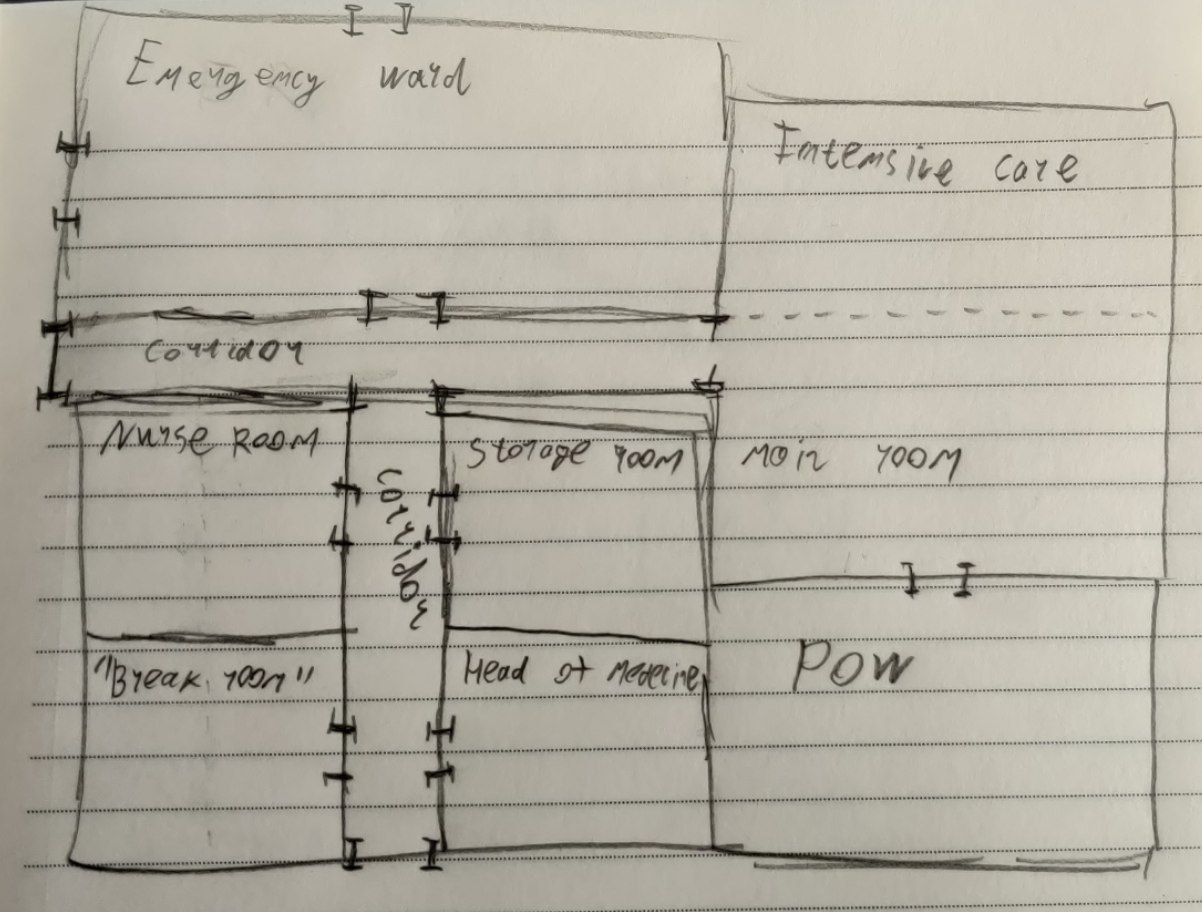 Emergency ward
Intensive care
Corridor
Nurse Room
Storage room
Main room
Corridor
"Break room"
Head of Medecine
POW